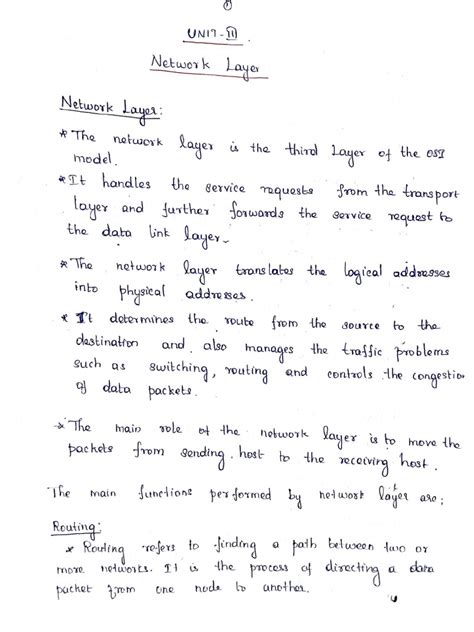 ①
UNIT-II.
Network Layer
Network Layer:
* The network layer is the third Layer of the OSI
model.
* It handles the service requests from the transport
layer and further forwards the service request to
the data link layer.
* The network layer translates the logical addresses
into physical addresses.
* It determines the route from the source to the
destination and also manages the traffic problems
such as switching, routing and controls the congestion
of data packets.
* The main role of the network layer is to move the
packets from sending host to the receiving host.
The main functions performed by network layer are:
Routing:
* Routing refers to finding a path between two or
more networks. It is the process of directing a data
packet from one node to another.